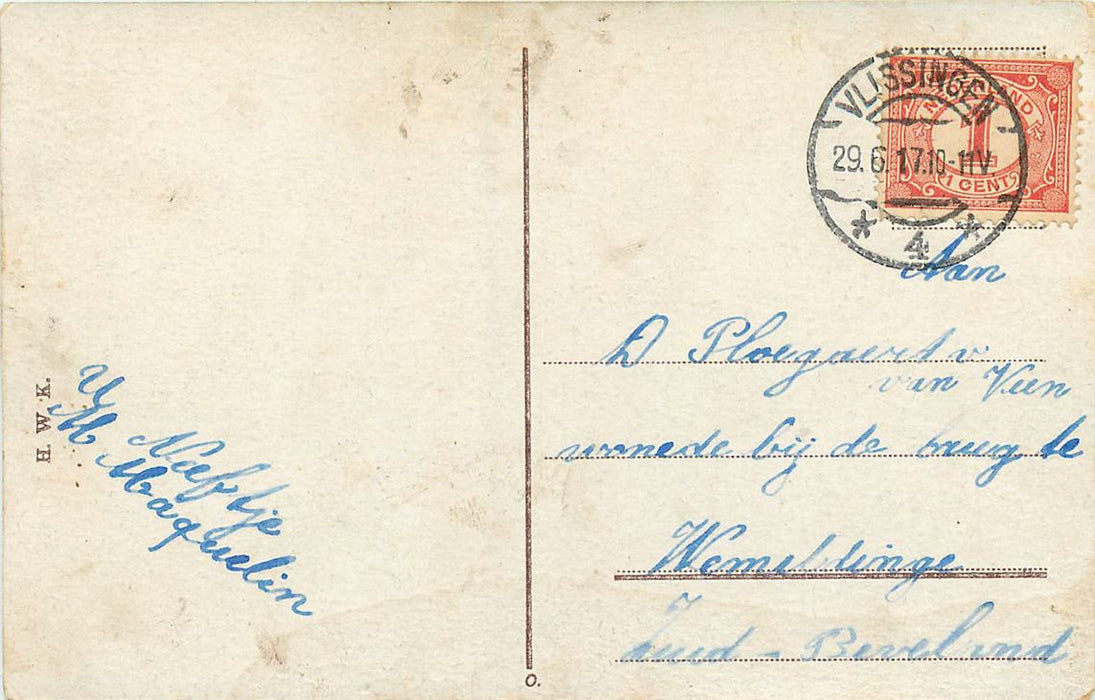 H. W. K.
V Neeftje
M Maquelin
O.
VLISSINGEN
29.6.17.10-11V
* 4 *
NEDERLAND
1
1 CENT
Aan
D Ploegaert v
van Veen
wonede bij de brug te
Wemeldinge
Zuid - Beveland